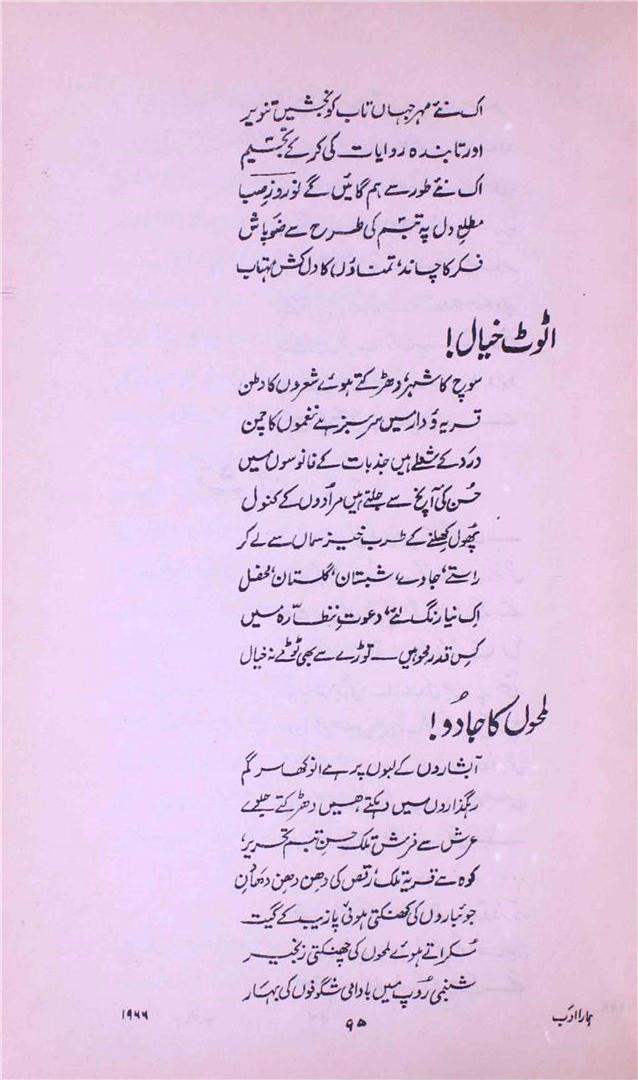 اک نئے مہرِ جہاں تاب کو بخشیں تنویر
اور تابندہ روایات کی کر کے تجسیم
اک نئے طور سے ہم گائیں گے نوروزِ صبا
مطلعِ دل پہ تبسّم کی طرح سے ضوپاش
فکر کا چاند، تمناؤں کا دل کش مہتاب
اٹوٹ خیال!
سوچ کا شہر، دھڑکتے ہوئے شعروں کا وطن
قریۂ دار میں سرسبز ہے نغموں کا چمن
درد کے شعلے ہیں جذبات کے فانوسوں میں
حُسن کی آنچ سے جلتے ہیں مرادوں کے کنول
پھول کھلنے کے طرب خیز سماں سے لے کر
راستے، جادے، شبستان، گلستان، محفل
اِک نیا رنگ لئے، دعوتِ نظّارہ میں
کِس قدر محو ہیں — توڑے سے بھی ٹوٹے نہ خیال
لمحوں کا جادُو!
آبشاروں کے لبوں پر ہے انوکھا سرگم
رہگذاروں میں دہکتے ہیں دھڑکتے جلوے
عرش سے فرش تلک حسنِ تبسم تحریر،
کوہ سے قریہ تلک، رقص کی دھن دھن دھادُن
جوئباروں کی کھنکتی ہوئی پازیب کے گیت
مُسکراتے ہوئے لمحوں کی چھنکتی زنجیر
شبنمی رُوپ میں بادامی شگوفوں کی بہار
ہمارا ادب
۹۵
۱۹۶۶